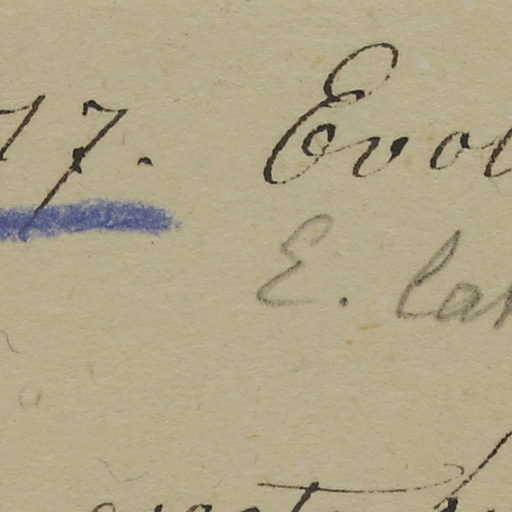 17. Evol
E. lat